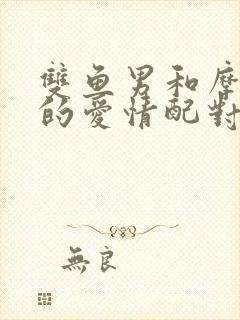 雙魚男和摩
的愛情配對
無良